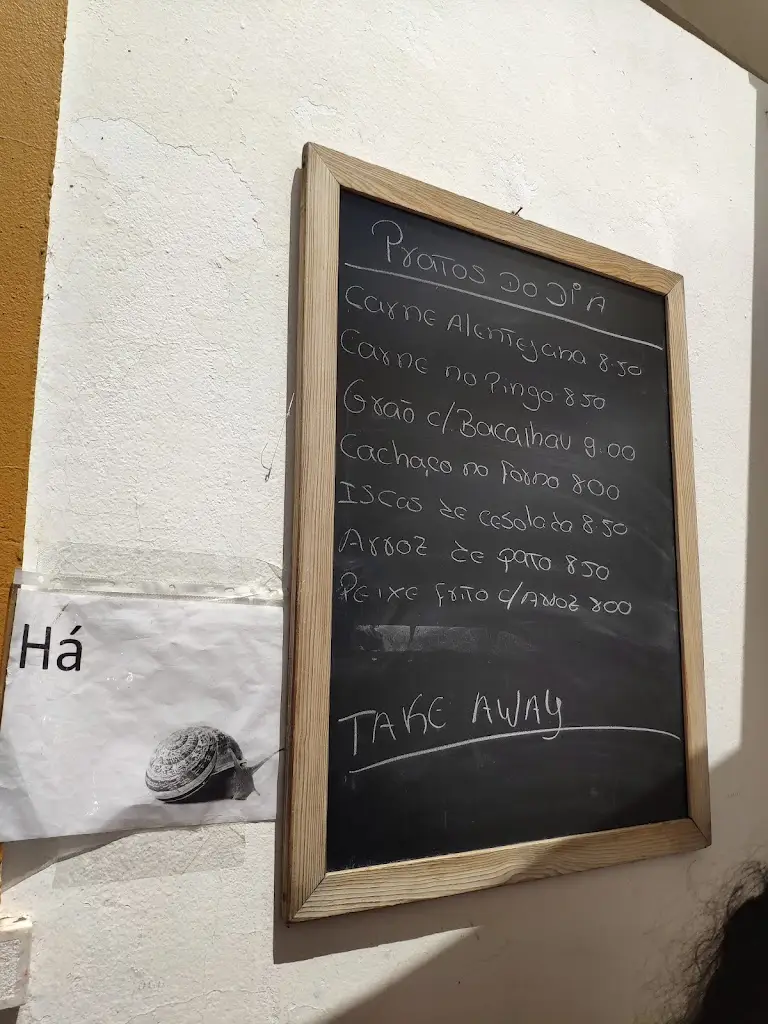 Pratos do Dia
Carne Alentejana 8.50
Carne no Pingo 850
Grão c/Bacalhau 9.00
Cachaço no Forno 800
Iscas de cesolada 8.50
Arroz de pato 850
Peixe frito c/Arroz 800
TAKE AWAY
Há